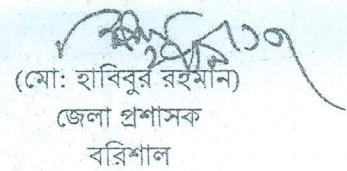 (মো: হাবিবুর রহমান)
জেলা প্রশাসক
বরিশাল